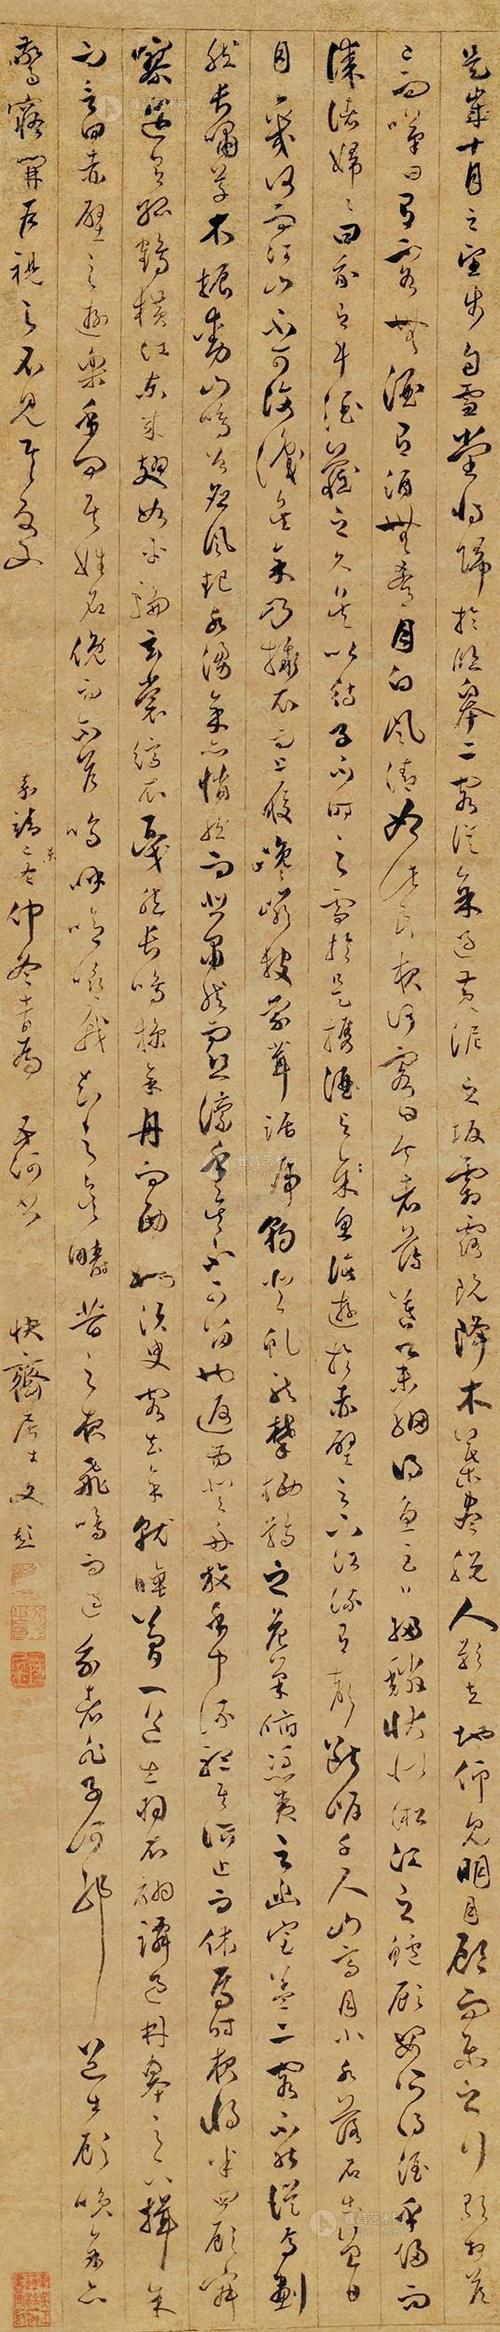 是歲十月之望步自雪堂將歸於臨皋二客從余過黃泥之坂霜露既降木葉盡脫人影在地仰見明月顧而樂之行歌相答
已而嘆曰有客無酒有酒無肴月白風清如此良夜何客曰今者薄暮舉網得魚巨口細鱗狀似松江之鱸顧安所得酒乎歸而
謀諸婦婦曰我有斗酒藏之久矣以待子不時之需於是攜酒與魚復遊於赤壁之下江流有聲斷岸千尺山高月小水落石出曾日
月之幾何而江山不可復識矣余乃攝衣而上履巉巖披蒙茸踞虎豹登虬龍攀栖鶻之危巢俯馮夷之幽宮蓋二客不能從焉劃
然長嘯草木振動山鳴谷應風起水湧余亦悄然而悲肅然而恐凜乎其不可留也返而登舟放乎中流聽其所止而休焉時夜將半四顧寂
寥適有孤鶴橫江東來翅如車輪玄裳縞衣戛然長鳴掠余舟而西也須臾客去余就睡夢一道士羽衣翩躚過臨皋之下揖余
而言曰赤壁之遊樂乎問其姓名俛而不答嗚呼噫嘻我知之矣疇昔之夜飛鳴而過我者非子也耶道士顧笑余亦
驚寤開戶視之不見其處
嘉靖 仲冬